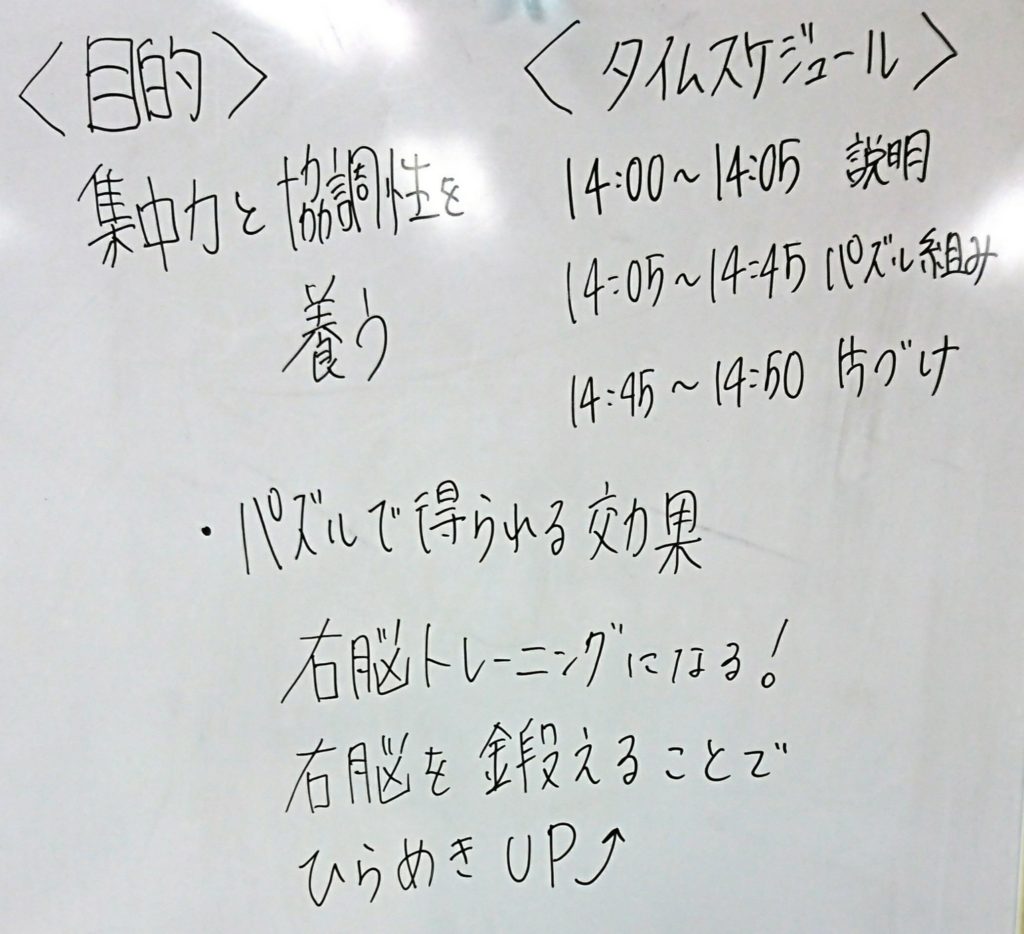 〈目的〉
集中力と協調性を
養う
〈タイムスケジュール〉
14:00～14:05 説明
14:05～14:45 パズル組み
14:45～14:50 片づけ
・パズルで得られる効果
右脳トレーニングになる!
右脳を鍛えることで
ひらめきUP⤴